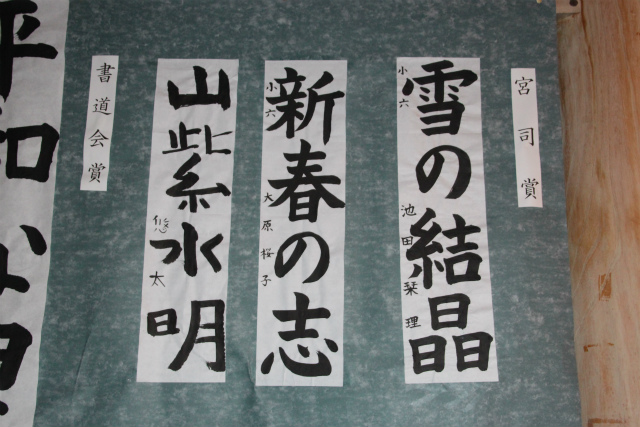 宮司賞
雪の結晶
小六 池田栞理
新春の志
小六 大原桜子
書道会賞
山紫水明
悠太
平和な